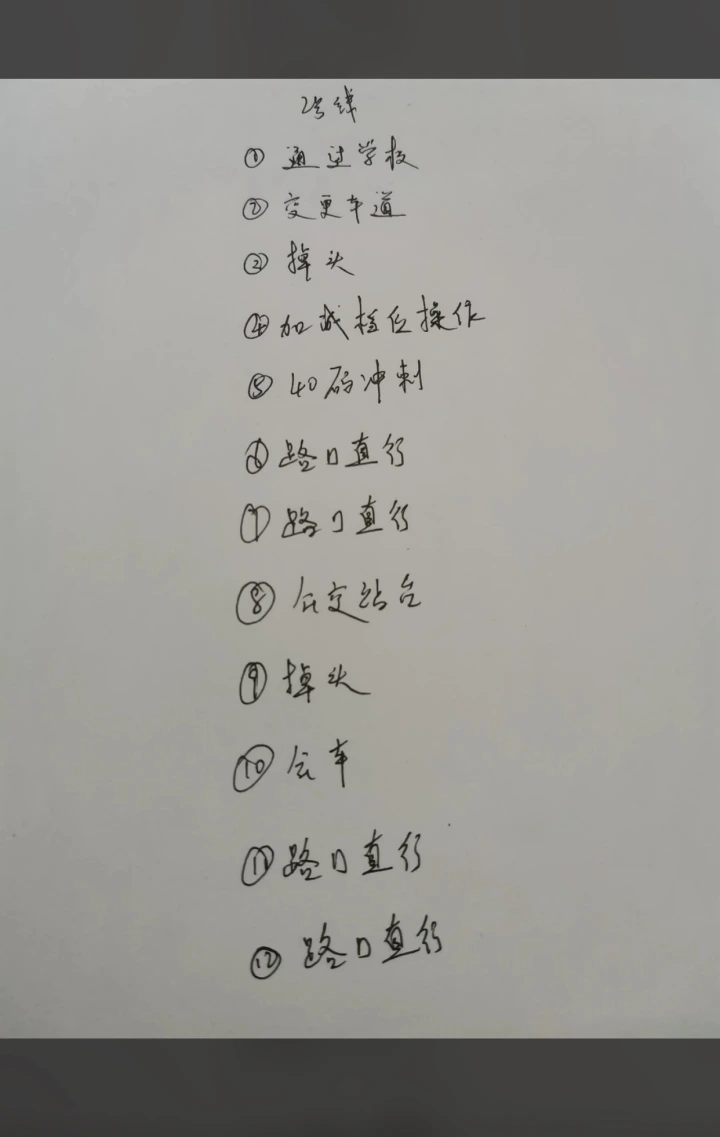 2号线
① 通过学校
② 变更车道
③ 掉头
④ 加减档位操作
⑤ 40码冲刺
⑥ 路口直行
⑦ 路口直行
⑧ 公交站台
⑨ 掉头
⑩ 会车
⑪ 路口直行
⑫ 路口直行